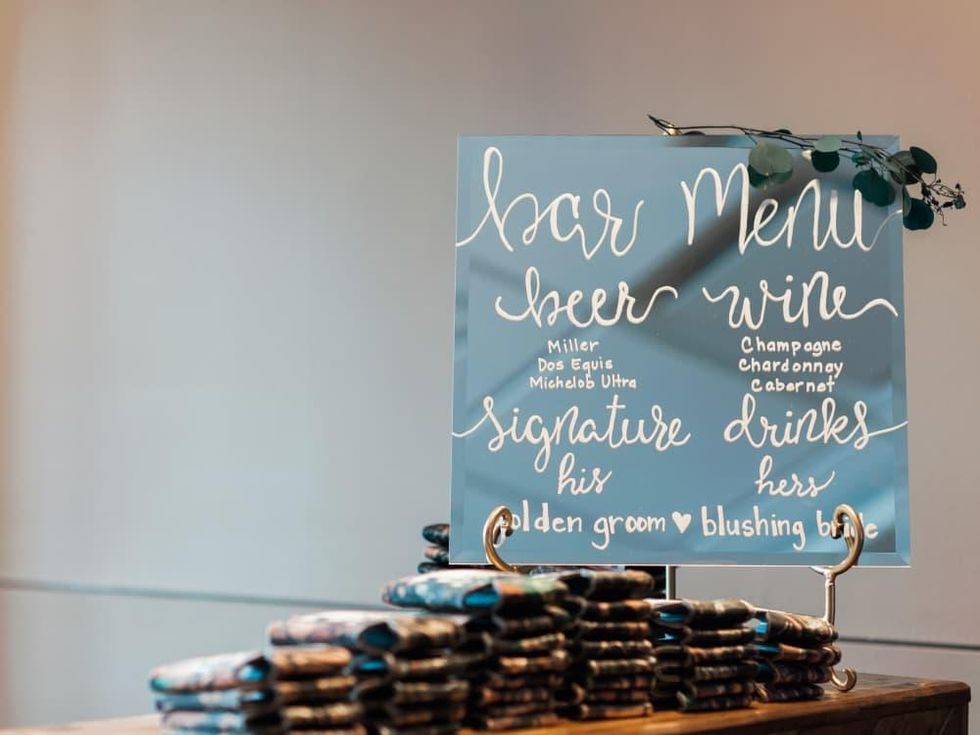 bar Menu
beer wine
Miller
Dos Equis
Michelob Ultra
Champagne
Chardonnay
Cabernet
signature drinks
his hers
golden groom ♥ blushing bride